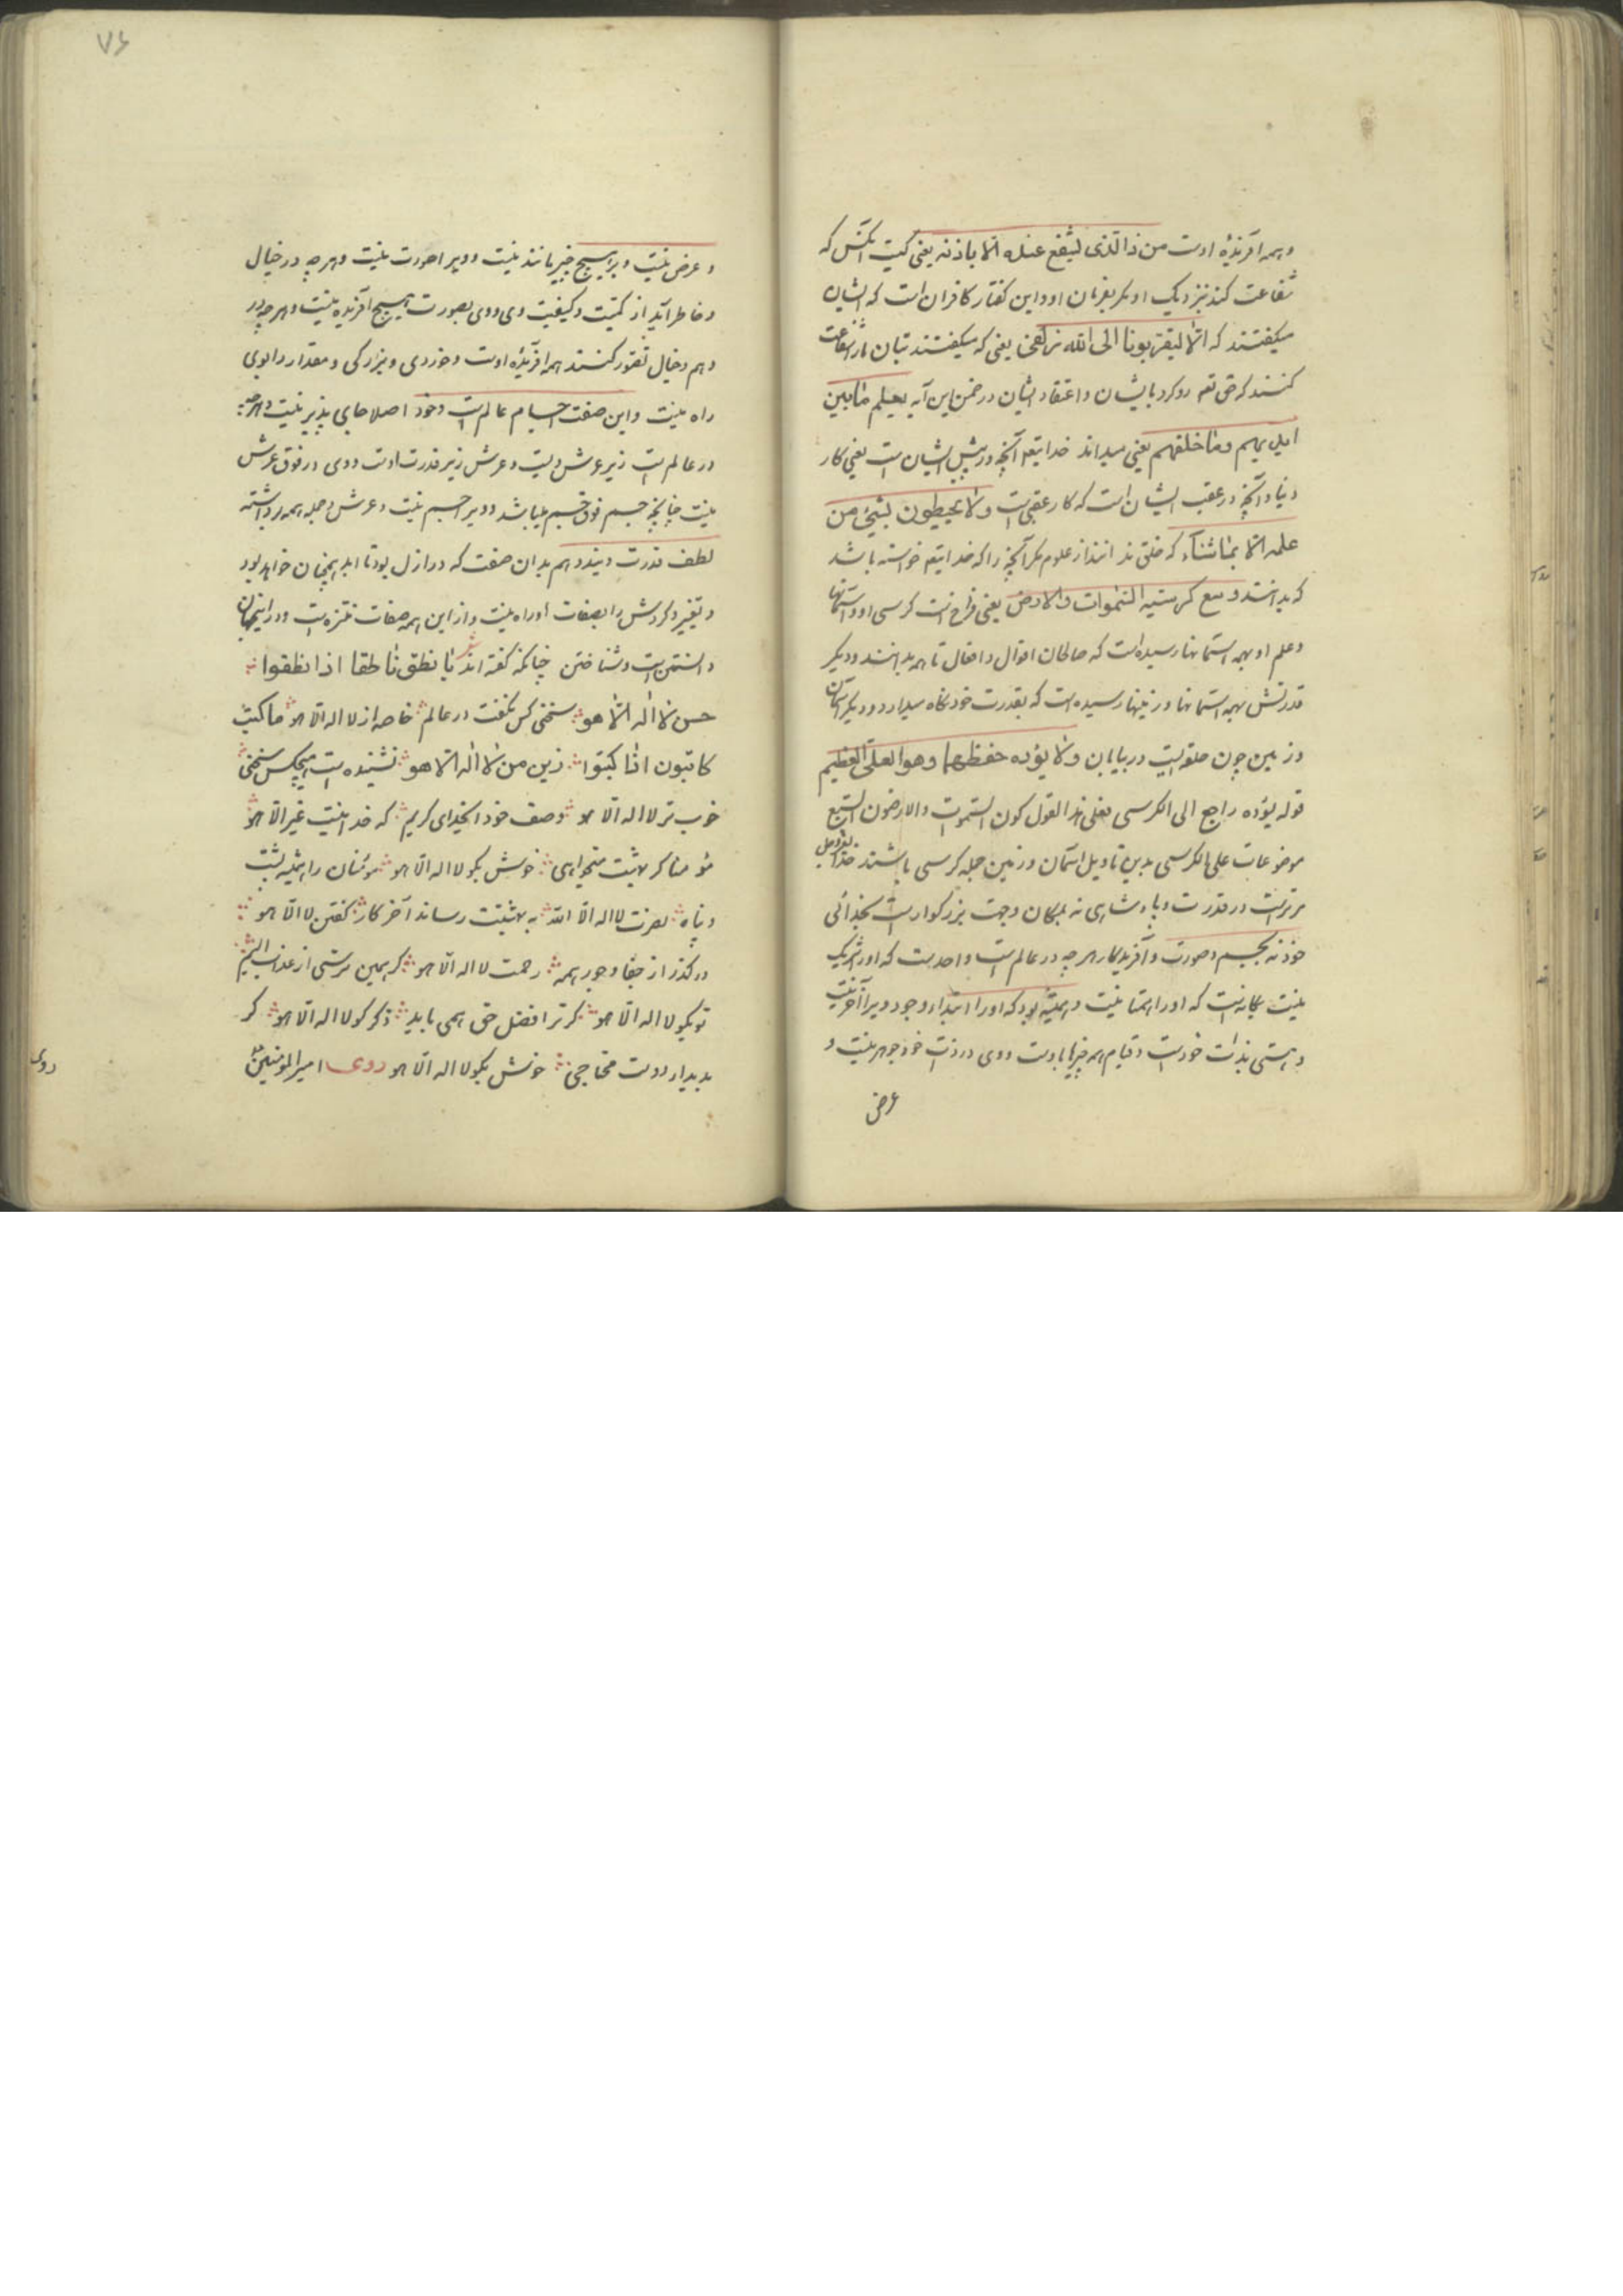 و همه آفریدهٔ اوست من ذا الذی یشفع عنده الا باذنه یعنی کیست آنکس که
شفاعت کند نزدیک او مکر بفرمان او و این کفتار کافران است که ایشان
میکفتند که الا لیقربونا الی الله زلفی یعنی که میکفتند بتان مارا شفاعت
کنند که حق تعه رد کرد بایشان و اعتقاد ایشان در ضمن این آیه یعلم ما بین
ایدیهم وما خلفهم یعنی میداند خدایتعه آنچه در پیش ایشان است یعنی کار
دنیا و آنچه در عقب ایشان است که کار عقبی است ولا یحیطون بشیٔ من
علمه الا بما شآء که خلق ندانند از علوم مکر آنچه را که خدایتعه خواسته باشد
که بدانند وسع کرسیه السموات والارض یعنی فراخ است کرسی او و آسمانها
و علم او بهمه آسمانها رسیده است که صالحان اقوال و افعال تا همه بدانند و دیکر
قدرتش بهمه آسمانها و زمینها رسیده است که بقدرت خود نکاه میدارد و دیکر آسمان
و زمین چون حلقه ایست در بیابان ولا یؤده حفظهما وهو العلی العظیم
قوله یؤده راجع الی الکرسی فعلی هذا القول کون السموات والارضون السبع
موضوعات علی الکرسی بدین تاویل آسمان و زمین جمله کرسی باشند خدای عزوجل
برتر است در قدرت و پادشاهی نه بمکان و جهت بزرکوار است بخدائی
خود نه بجسم و صورت و آفریدکار هر چه در عالم است واحد است که او را شریک
نیست یکانه است که او را همتا نیست و همیشه بود که او را ابتداء وجود ویرا آخر نیست
و هستی بذات خود است و قیام همه چیزها باوست و وی در ذات خود جوهر نیست و
عرض
۷۶
و عرض نیست ویرا هیچ چیز مانند نیست و ویرا صورت نیست و هر چه در خیال
و خاطر آید از کمیت و کیفیت وی و وی بصورت هیچ آفریده نیست و هر چه در
وهم و خیال تصور کنند همه آفریدهٔ اوست و خوردی و بزرکی و مقدار را بوی
راه نیست و این صفت اجسام عالم است و خود اصلا جای پذیر نیست و هر چه
در عالم است زیر عرش ویست و عرش زیر قدرت اوست و وی در فوق عرش
نیست چنانچه جسم فوق جسم میباشد و ویرا جسم نیست و عرش و جمله همه برداشته
لطف قدرت ویند و هم بدان صفت که در ازل بود تا ابد همچنان خواهد بود
و تغیر و کردش را بصفات او راه نیست و از این همه صفات منزه است و در اینجهان
دانستن است و شناختن چنانکه کفته اند شعر ما نطق ناطقا اذا نطقوا
حسن لا اله الا هو سخنی کس نکفت در عالم خاصه از لا اله الا هو ما کتب
کاتبون اذا کتبوا زین من لا اله الا هو نشنیده است هیچکس سخنی
خوب تر لا اله الا هو وصف خود آنخدای کریم که خدا نیست غیر الا هو
مؤمنا کر بهشت میخواهی خوش بکو لا اله الا هو مؤمنان را همیشه پشت
و پناه نصرت لا اله الا الله به بهشتت رساند آخر کار کفتن لا الا هو
در کذر از جفا و جور همه رحمت لا اله الا هو کر همین ترسی از عذاب الیم
تو بکو لا اله الا هو کر ترا فضل حق همی باید ذکر کو لا اله الا هو کر
بدیدار دوست محتاجی خوش بکو لا اله الا هو روی امیرالمؤمنین
روی